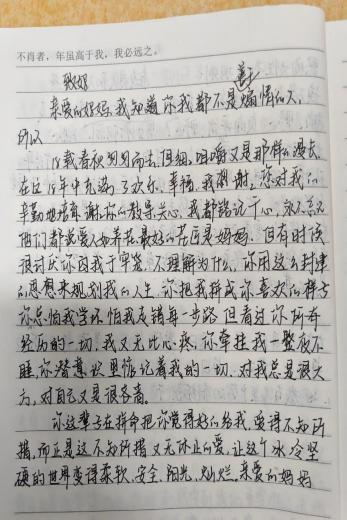 不肖者，年虽高于我，我必远之。
致妈
善
亲爱的好妈，我知道你我都不是煽情的人，
所以
18载春秋匆匆而去，但细咀嚼又是那样的漫长
在这18年中充满了欢乐、幸福，我感谢，您对我的
辛勤地培育，谢你的教导关心，我都铭记于心，永不忘
他们都说爱人如养花，最好的花匠是妈妈，但有时候
很讨厌你困我于牢笼，不理解为什么，你用这么封建
的思想来规划我的人生，你把我拼成你喜欢的样子
你总怕我学坏，怕我走错每一步路，但看过你所有
经历的一切，我又无比心疼，你牵挂我一整夜不
睡，你潜意识里惦记着我的一切，对我总是很大
方，对自己又是很吝啬。
你这辈子在拼命把你觉得好的给我，爱得不知所
措，而正是这不知所措又无休止的爱，让这个冰冷坚
硬的世界变得柔软，安全，阳光，灿烂。亲爱的妈妈